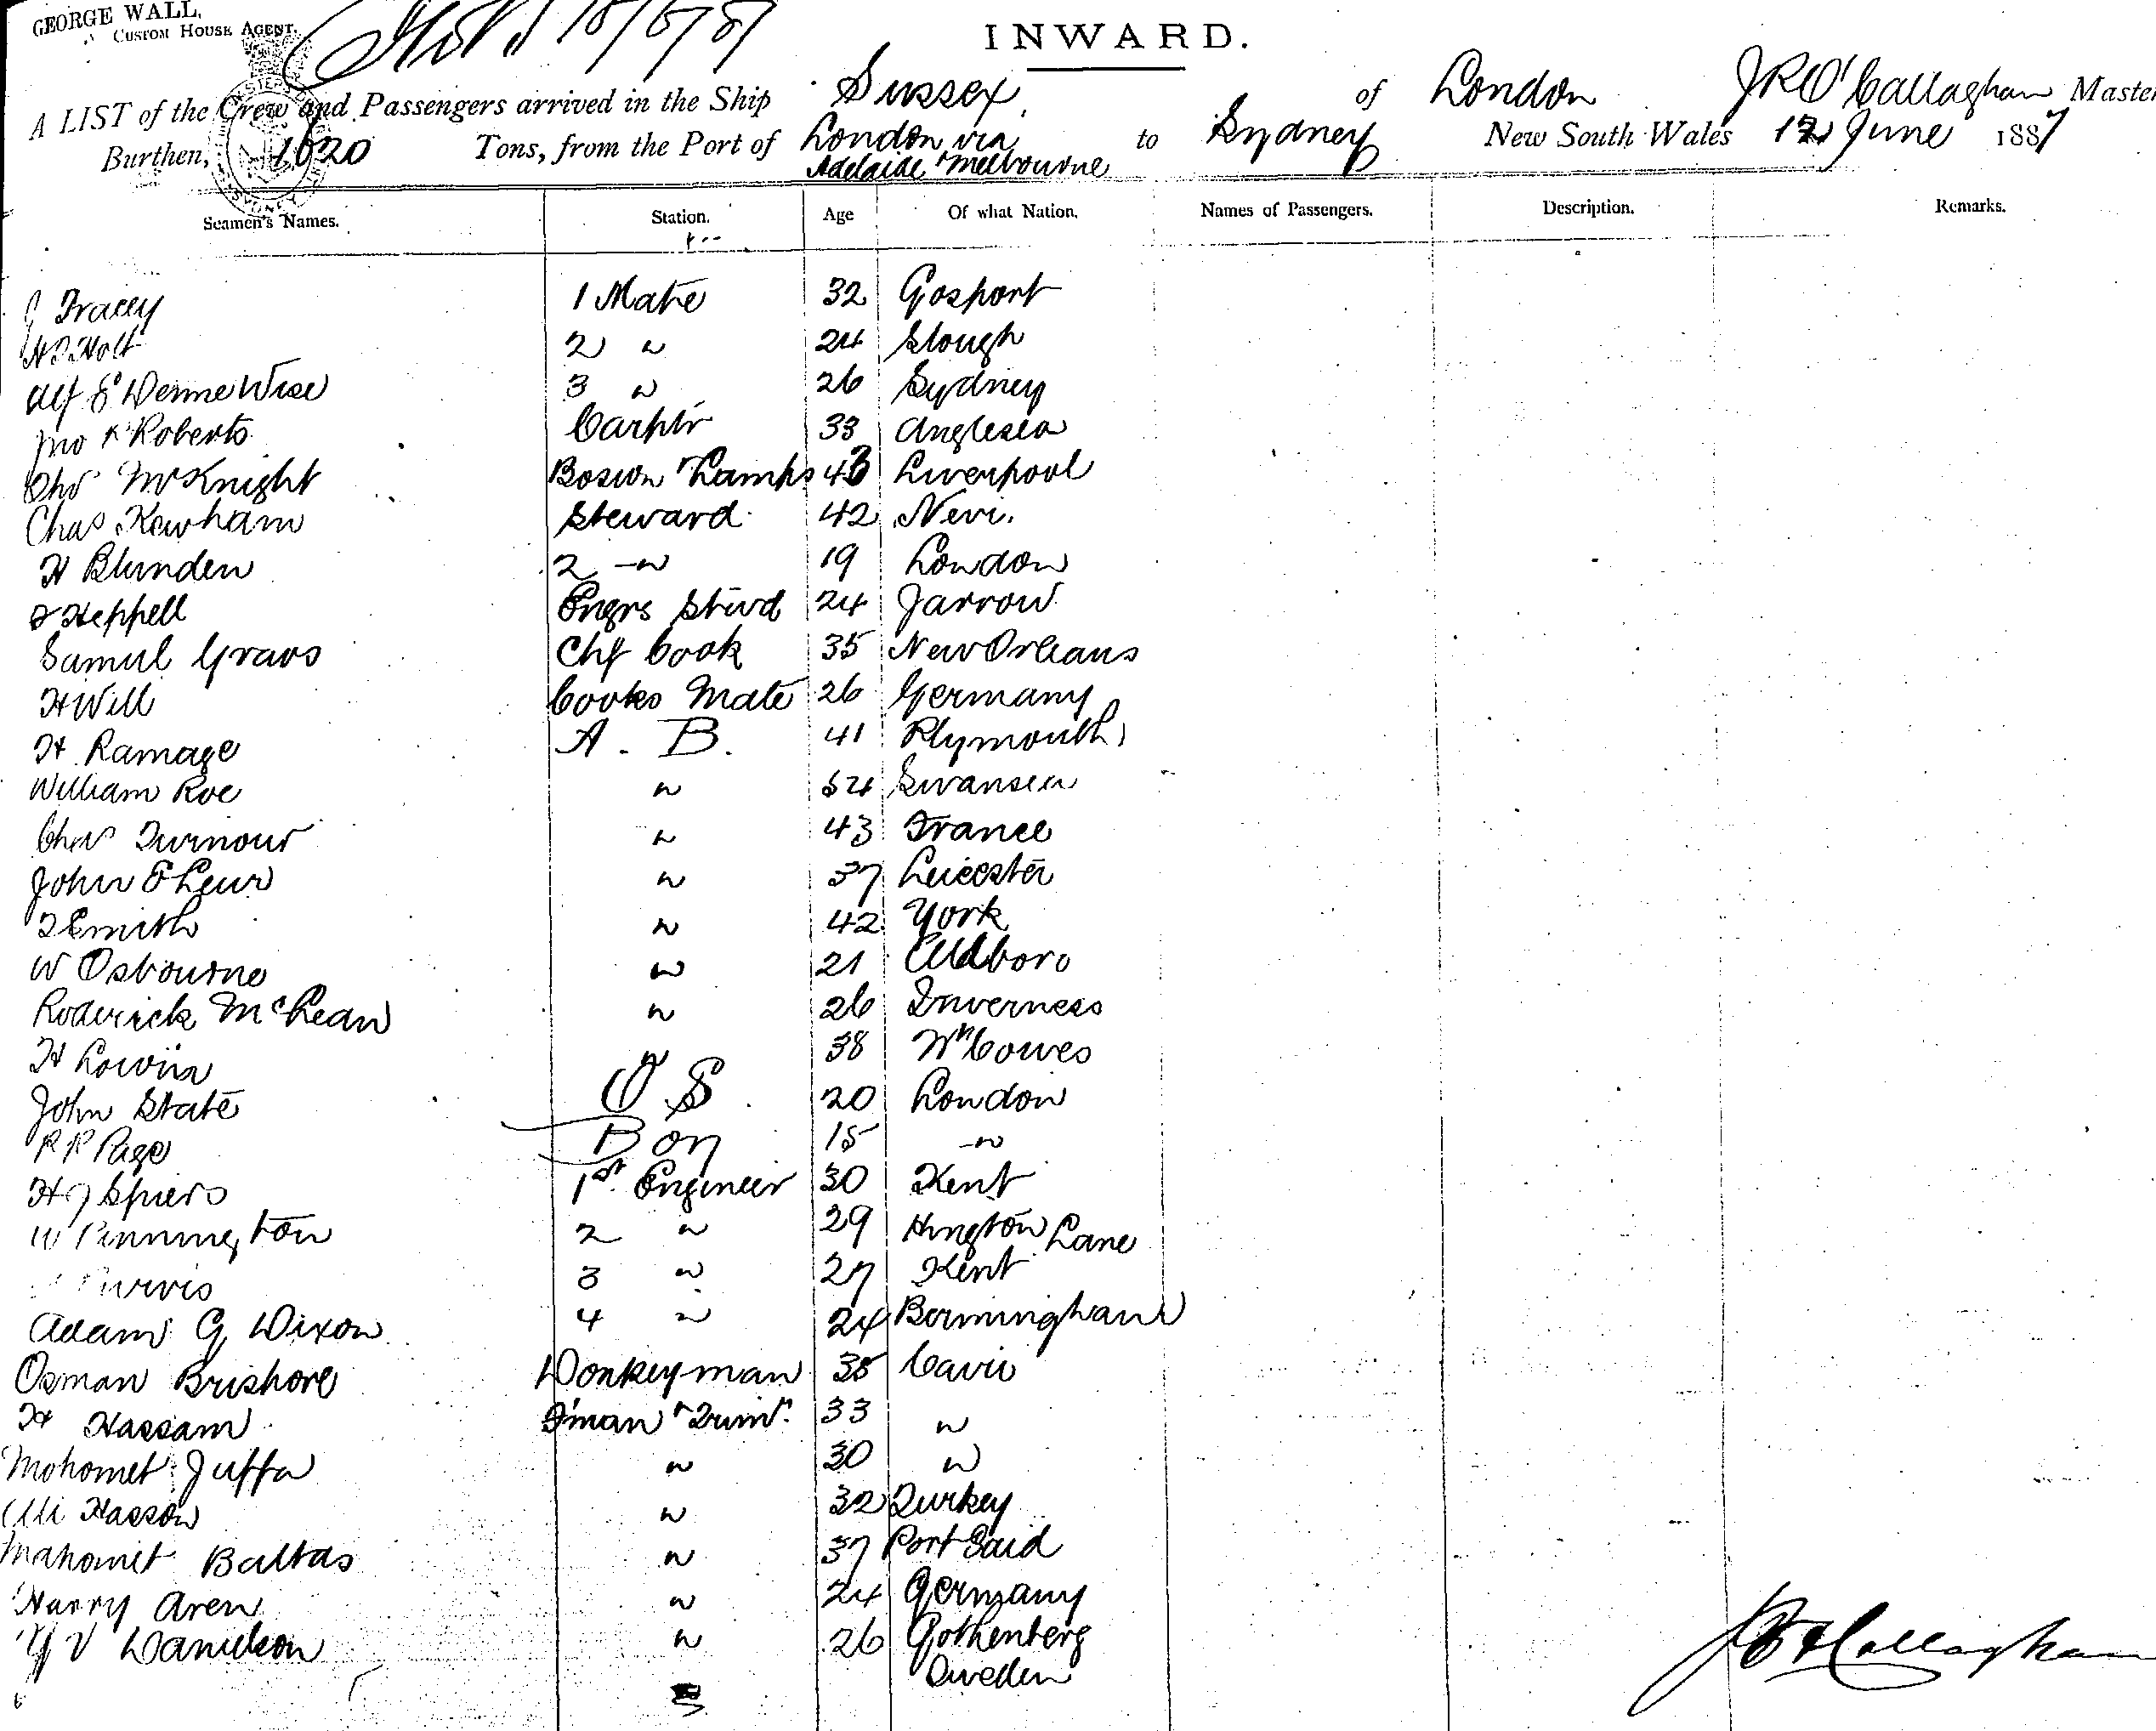 GEORGE WALL,
CUSTOM HOUSE AGENT.
INWARD.
A LIST of the Crew and Passengers arrived in the Ship Sussex of London J R O'Callaghan Master
Burthen, 1620 Tons, from the Port of London via Adelaide & Melbourne to Sydney New South Wales 12 June 1887
Seamen's Names. Station. Age Of what Nation. Names of Passengers. Description. Remarks.
Tracey 1 Mate 32 Gosport
Holt 2 " 24 Slough
Alf E Denne Wise 3 " 26 Sydney
Jno Roberts Carptr 33 Anglesea
Chs McKnight Boswn & Lamps 43 Liverpool
Chas Kewham Steward 42
H Blunden 2 " 19 London
Heppell Engrs Stwd 24 Jarrow
Samul Gravs Chf Cook 35 New Orleans
H Will Cooks Mate 26 Germany
H Ramage A. B. 41 Plymouth
William Roe " 54 Swansea
Chas Turnour " 43 France
John E Leur " 37 Leicester
Smith " 42 York
W Osbourne " 21 Aldboro
Roderick McLean " 26 Inverness
H " 38 Wt Cowes
John State O S 20 London
R R Page Boy 15 "
H J Spiers 1st Engineer 30 Kent
W Pennington 2 " 29 Lane
Purvis 3 " 27 Kent
Adam G Dixon 4 " 24 Birmingham
Osman Brishore Donkeyman 35 Cairo
H Hassam F'man & Trimr 33 "
Mohomet Juffa " 30 "
Ali Hasson " 32 Turkey
Mahomet Baltas " 37 Port Said
Harry Aren " 24 Germany
V Danielson " 26 Gothenberg
Sweden
J R O'Callaghan